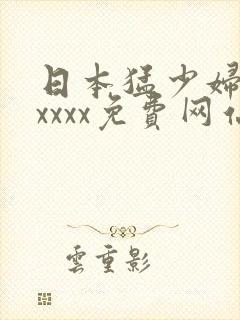 日本猛少婦
xxxx免費网
雲重影